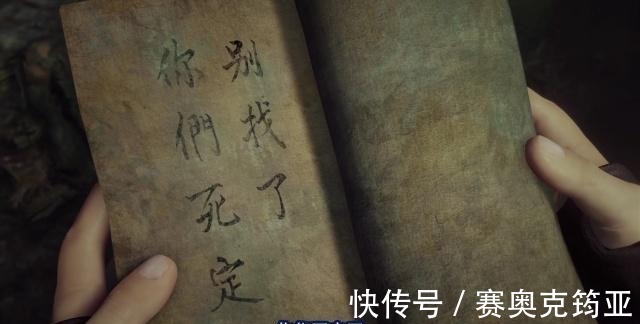 别找了
你們死定
快传号 / 赛奥克筠亚